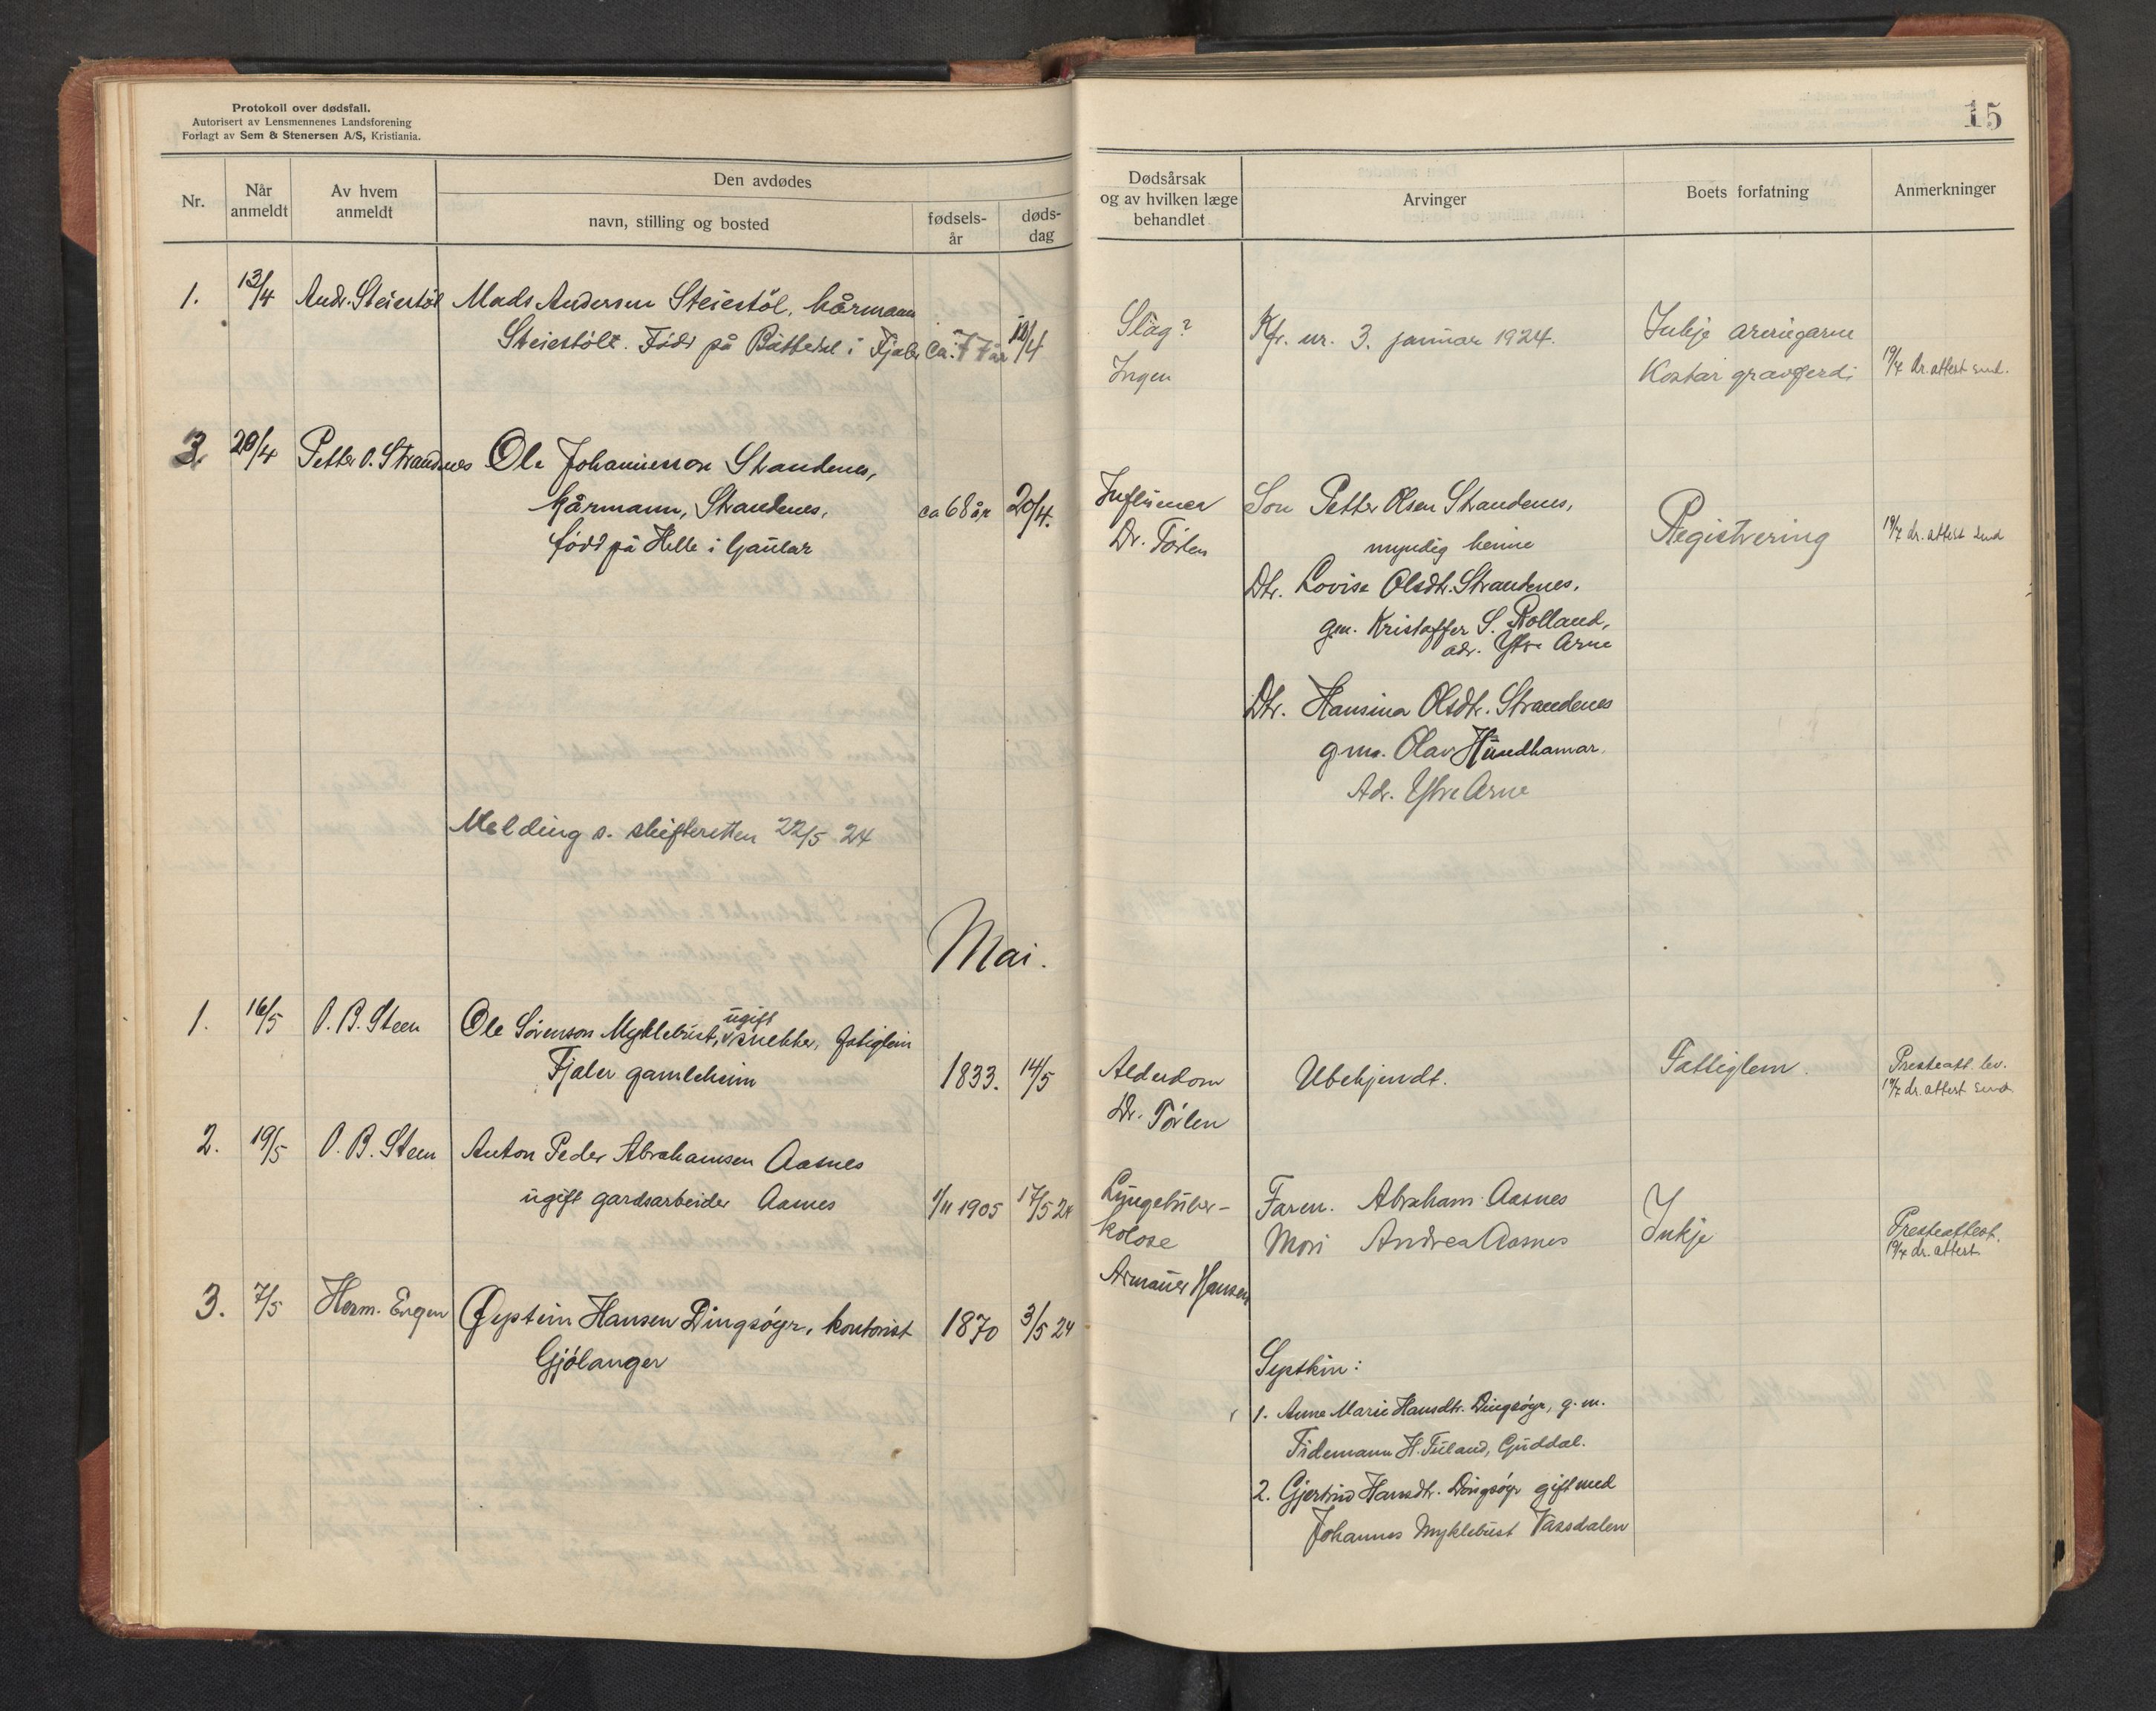 Protokoll over dødsfall.
Autorisert av Lensmennenes Landsforening
Forlagt av Sem & Stenersen A/S, Kristiania.
15
Nr.
Når anmeldt
Av hvem anmeldt
Den avdødes
navn, stilling og bosted
fødsels-
år
døds-
dag
Dødsårsak
og av hvilken læge
behandlet
Arvinger
Boets forfatning
Anmerkninger
1. 13/4 Andr. Steiestøl Mads Andersen Steiestøl, kårmann
Steiestølt. Født på i Fjaler ca. 77 år 12/4
Slag? Kfr. nr. 3. januar 1924. Inkje
Ingen Kostar gravferdi 19/7 dr. attest send.
3. 20/4 Petter O. Strandnes Ole Johannesson Strandenes,
kårmann, Strandenes, ca 68 år 20/4.
født på Helle i Gaular
Influenea Son Petter Olsen Strandenes, Registrering 19/7 dr. attest send
Dr. Törlen myndig heime
Dtr. Lovise Olsdtr. Strandenes,
gm. Kristoffer S. Rolland,
adr. Ytre Arne
Dtr. Hansina Olsdtr. Strandenes
gm. Olav Hundhamar.
Adr. Ytre Arne
Melding s. skifteretten 22/5 24
Mai.
1. 16/5 O. B. Steen Ole Sørenson Myklebust, ugift snekker, fatiglem
Fjaler gamleheim 1833. 14/5
Alderdom Ubekjendt. Fattiglem. Presteatt. lev.
Dr. Törlen 19/7 dr. attest send
2. 19/5 O. B. Steen Anton Peder Abrahamsen Aasnes
ugift gardsarbeider Aasnes 1/11 1905 17/5 24
Lungetuber-
kolose
Armauer Hansen
Faren. Abraham Aasnes
Mori Andrea Aasnes
Inkje
Presteattest.
19/7 dr. attest
3. 7/5 Herm. Engen Øystein Hansen Dingsøyr, kontorist 1870 3/5 24
Gjølanger
Syskin:
1. Anne Marie Hansdtr. Dingsøyr, g. m.
Tidemann H. Tuland, Guddal.
2. Gjertrud Hansdtr. Dingsøyr gift med
Johannes Myklebust Vassdalen